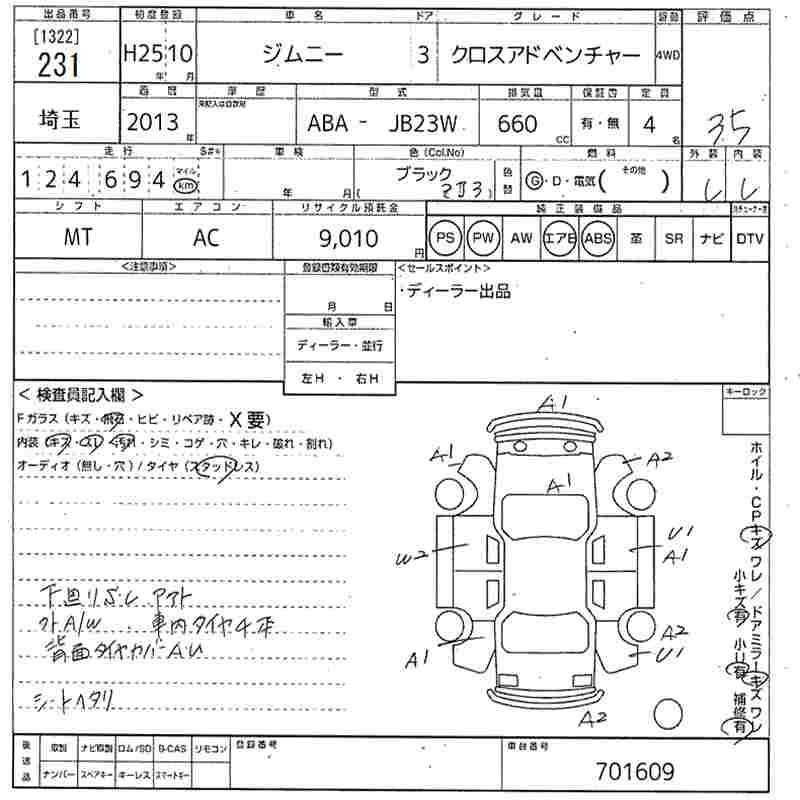 出品番号 初度登録 車名 ドア グレード 駆動 評価点
[1322]
231 H25 10 ジムニー 3 クロスアドベンチャー 4WD
年 月
西暦 車歴 型式 排気量 保証書 定員
未記入は自家用
埼玉 2013年 ABA - JB23W 660 cc 有・無 4 名 3.5
走行 S#* 車検 色(Col.No) 燃料 外装 内装
124,694 マイル km 年 月 ブラック (ZJ3) 色替 G・D・電気( その他 ) C C
シフト エアコン リサイクル預託金 純正装備品
MT AC 9,010円 PS PW AW エアB ABS 革 SR ナビ DTV
<注意事項> 登録書類有効期限 <セールスポイント>
・ディーラー出品
月 日
輸入車
ディーラー・並行
左H ・ 右H
<検査員記入欄> キーロック
Fガラス(キズ・飛石・ヒビ・リペア跡・X要)
内装(キズ・スレ・汚れ・シミ・コゲ・穴・キレ・破れ・割れ)
オーディオ(無し・穴)/タイヤ(スタッドレス)
A1
A1 A2
A1
W2 U1
A1
A1 A2
U1
A2
ホイル・CPキズ ワレ/ドアミラーキズ ワレ
小キズ有 小U有 補修有
下廻りサビ アト
外A/W 、車内タイヤ4本
背面タイヤカバーAU
シートヘタリ
後送品 取説 ナビ取説 ロム/SD B-CAS リモコン 登録番号 車台番号
ナンバー スペアキー キーレス スマートキー
701609